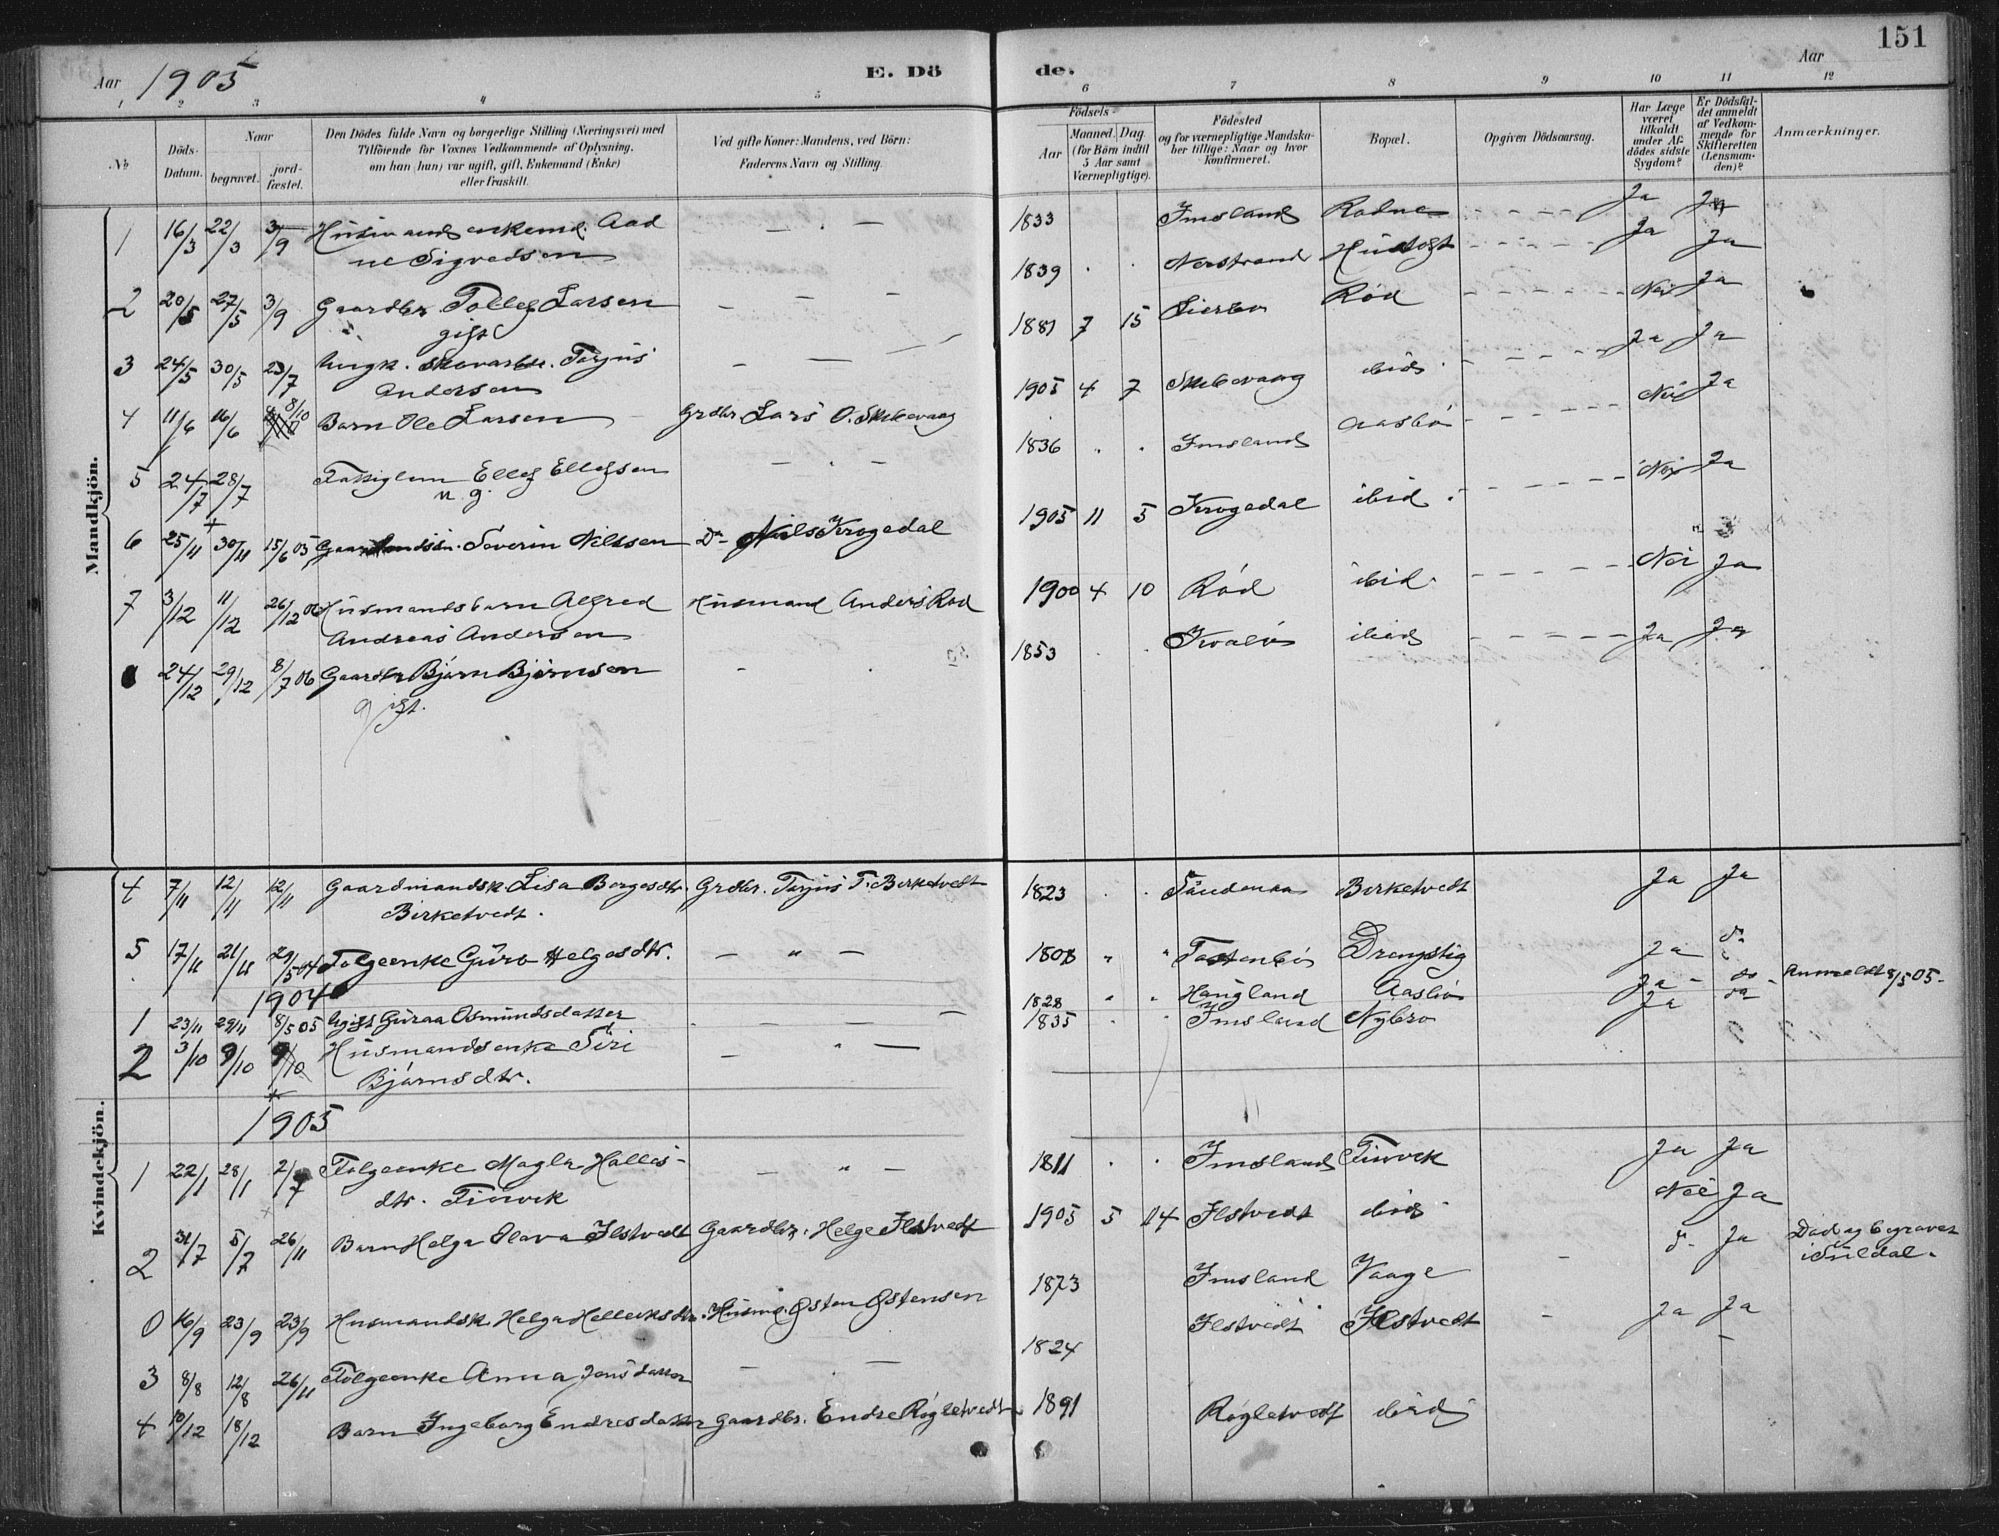 151
Aar 1905
E. Dö
de.
Aar
1 2 3 4 5
6 7 8 9 10 11 12
No
Döds-
Datum.
Naar
begravet.
jord-
fæstet.
Den Dödes fulde Navn og borgerlige Stilling (Næringsvei) med
Tilföiende for Voxnes Vedkommende af Oplysning.
om han (hun) var ugift, gift, Enkemand (Enke)
eller fraskilt.
Ved gifte Koner: Mandens, ved Börn:
Faderens Navn og Stilling.
Födsels-
Aar
Maaned. Dag.
(for Börn indtil
5 Aar samt
Værnepligtige).
Födested
og for værnepligtige Mandska-
ber tillige: Naar og hvor
konfirmeret.
Bopæl.
Opgiven Dödsaarsag.
Har Læge
været
tilkaldt
under Af-
dödes sidste
Sygdom?
Er Dödsfal-
det anmeldt
af Vedkom-
mende for
Skifteretten
(Lensman-
den)?
Anmærkninger.
Mandkjön.
1 16/3 22/3 3/9 Husmands enkemd. Aad
ne Sigvedsen
1833 Imsland Rodne Ja Ja
2 20/5 27/5 3/9 Gaardbr Tollef Larsen
gift
1839 Nerstrand Ja Ja
3 24/5 30/5 23/7 Ungk. Tarjus
Andersen
1881 7 15 Rød Nei Ja
4 11/6 16/6 8/10 Barn Ole Larsen Grdbr. Lars O. Skibevaag
1905 4 7 Skibevaag ibid. Ja Ja
5 24/7 28/7 Fattiglem Ellef Ellefsen
u. g.
1836 Imsland Aasbø Nei Ja
6 25/11 30/11 15/6 05 Severin Nilssen Do Nils Krogedal
1905 11 5 Krogedal ibid. Nei Ja
7 3/12 11/12 26/12 06 Husmandsbarn Alfred Husmand Anders Rød
Andreas Andersen
1900 4 10 Rød ibid. Nei Ja
24/12 29/12 8/7 06 Gaardbr Bjørn Bjørnsen
gift.
1853 Kvaløi ibid Ja Ja
Kvindekjön.
4 7/11 12/11 12/11 Gaardmandsk. Lisa Borgesdtr. Grdbr. Tarjus T. Birketvedt
Birketvedt.
1823 Birketvedt Ja Ja
5 17/11 21/11 29/5 04 Folgeenke Guro Helgesdtr. — " —
1808 Tastenbø Drengstig Ja do
1904
1 23/11 29/11 8/5 05 Ugift Guraa Osmundsdatter
1828 Haugland Aasbø Ja do Anmeldt 8/5 05.
2 3/10 9/10 9/10 Husmandsenke Siri — " —
Bjørnsdtr.
1835 Imsland Nybro Ja do
1905
1 22/1 28/1 2/7 Folgeenke Magla Halles- — " —
dtr. Tinvik
1811 Imsland Tinvik Ja Ja
2 31/7 5/7 26/11 Barn Helga Olava Ilstvedt Gaardbr. Helge Ilstvedt
1905 5 14 Ilstvedt ibid Nei Ja
0 16/9 23/9 23/9 Husmandsk. Helga Helleiksdtr. Husmd. Østen Østensen
1873 Imsland Vaage d. Ja Død og begravet
i Suldal.
3 8/8 12/8 26/11 Folgeenke Anna Jensdatter
1824 Ilstvedt Ilstvedt Ja Ja
4 10/12 18/12 Barn Ingeborg Endresdatter Gaardbr. Endre Røgletvedt
1891 Røgletvedt ibid